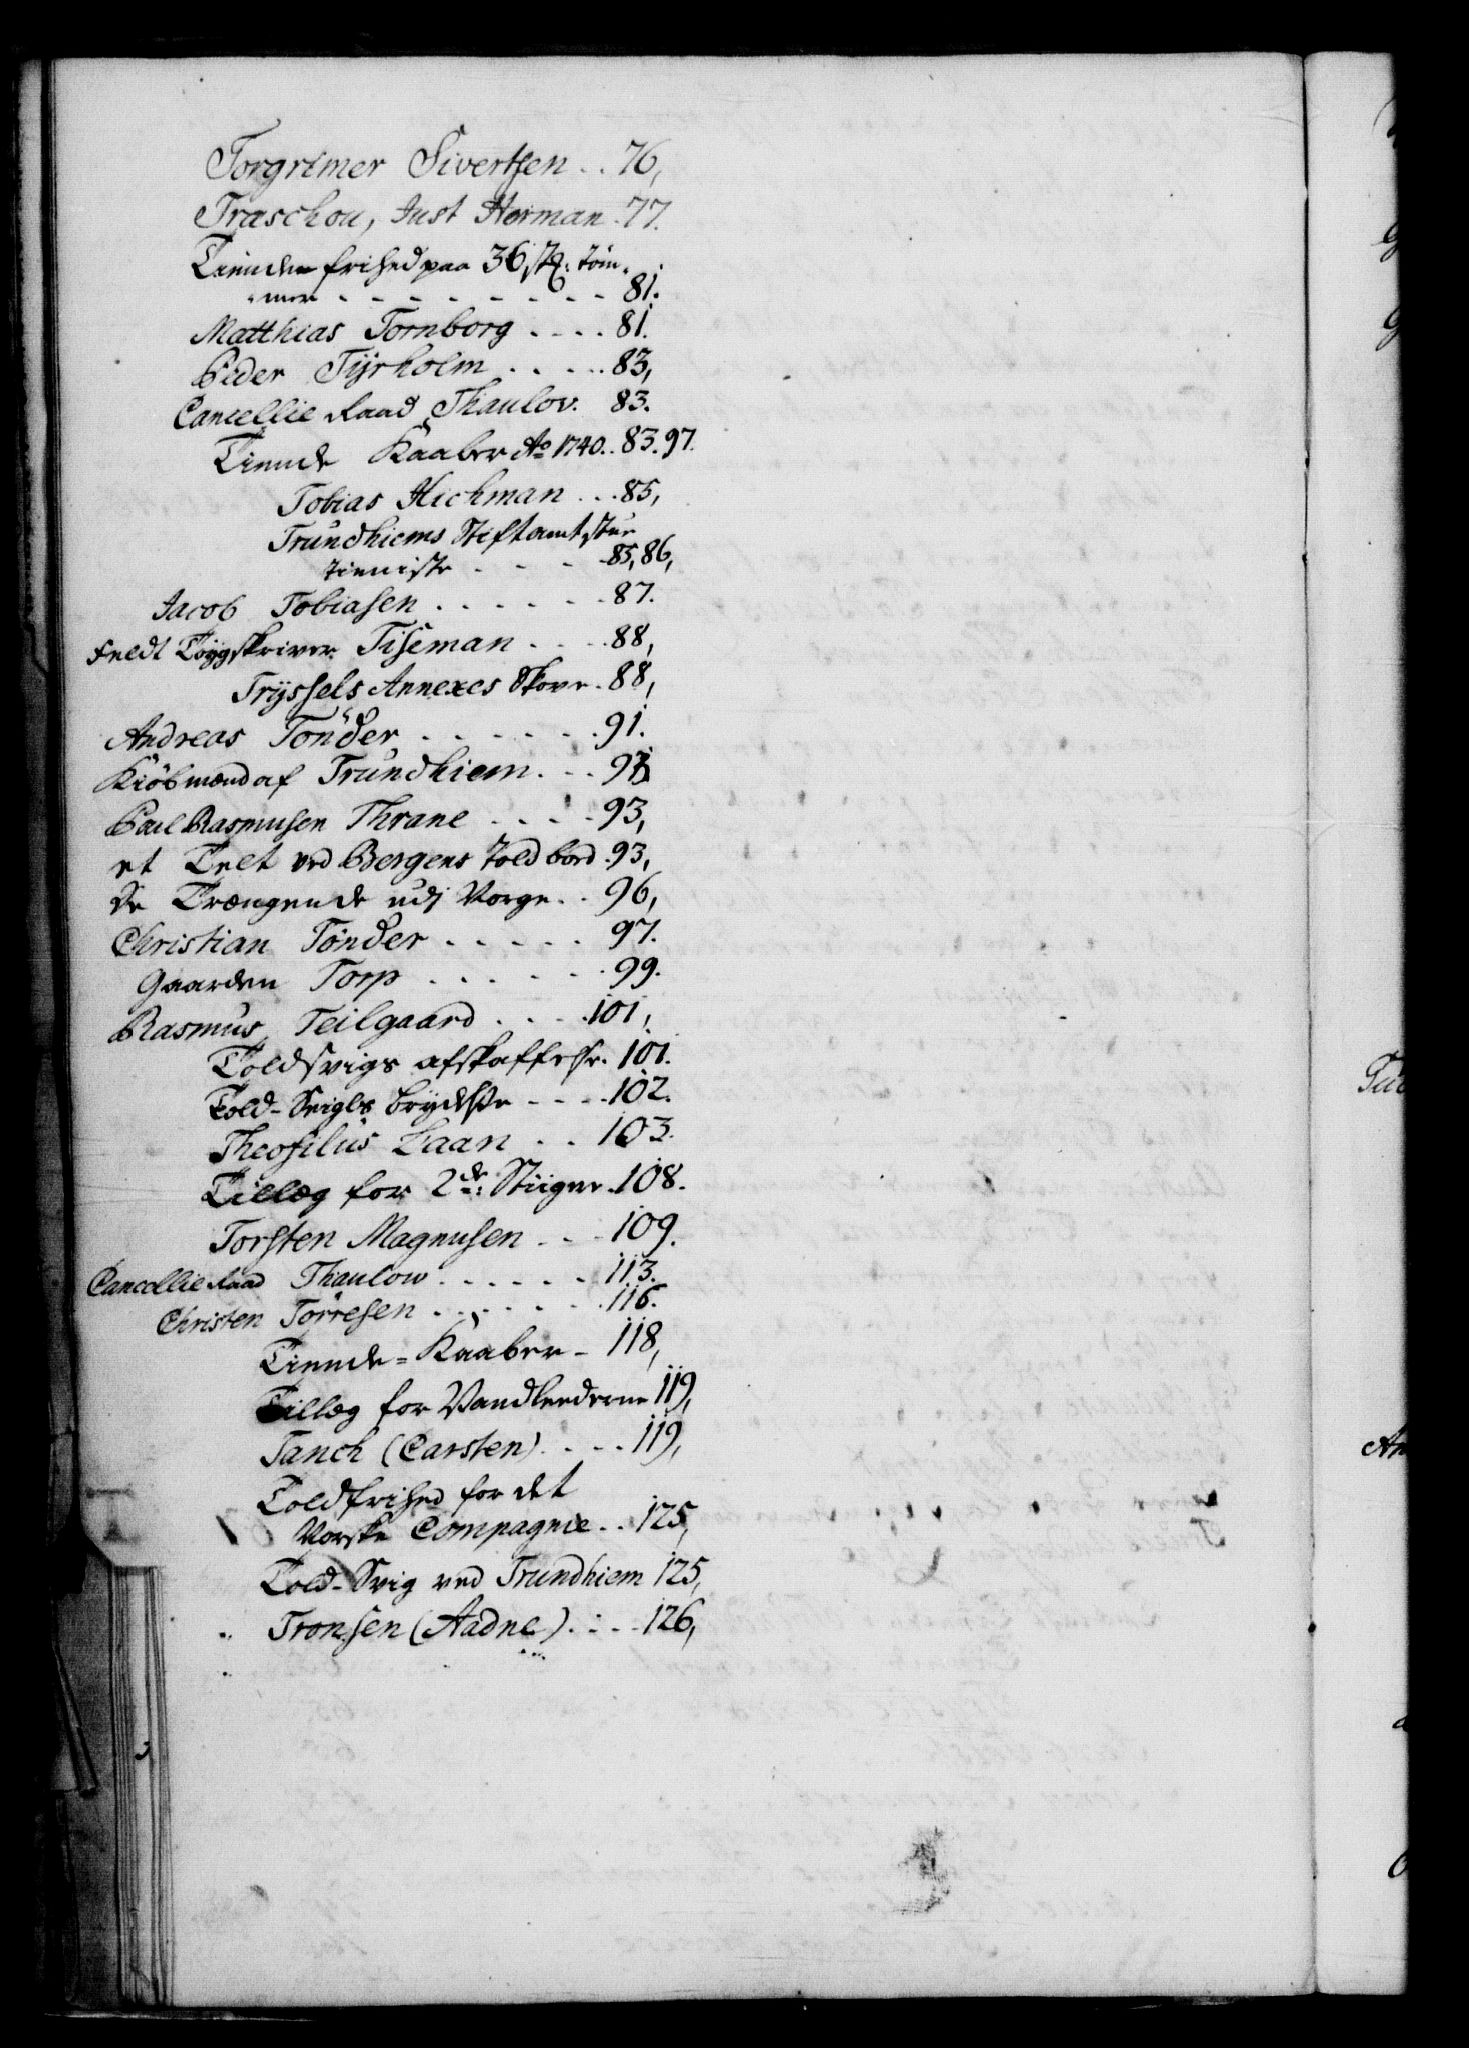 Torgrimer Sivertsen . . 76,
Traschou, Just Herman . 77.
Tiende frihed paa 36 stk: töm-
"mer - - - - - - - - - 81.
Matthias Tornborg . . . . 81.
Peder Tÿrholm . . . . . 83,
Cancellie Raad Thaulov. 83.
Tiende Kaaber Ao 1740. . 83. 97.
Tobias Hichman . . . 85,
Trundhiems Stiftamtstue
tieniste - - - - 85, 86,
Jacob Tobiasen . . . . . . . 87.
Feldt Töygskriver Tiseman . . . . 88,
Trÿssels Annexes Skove . 88,
Andreas Tönder . . . . . . . 91.
Kiöbmænd af Trundhiem . . . 93
Paul Rasmusen Thrane . . . . 93,
et Telt ved Bergens Toldbord . 93,
De Trængende udj Norge . . 96,
Christian Tönder . . . . . 97.
Gaarden Torp . . . . . . 99.
Rasmus Teilgaard . . . . 101,
Toldsvigs afskaffelse . 101.
Told-Svigs brÿdelse - - - - 102.
Theofilus Laan . . 103.
Tillæg for 2de: Stiigere . 108.
Torsten Magnusen . . . 109.
Cancellie Raad Thaulow . . . . . . 113.
Christen Torresen . . . . . . . 116.
Tiende=Kaaber - 118,
Tillæg for Vandleederne 119,
Tanch (Carsten) . . . . 119,
Toldfrihed for det
Norske Compagnie . . 125,
Told-Svig ved Trundhiem 125,
Tronsen (Aadne) . . . . 126,